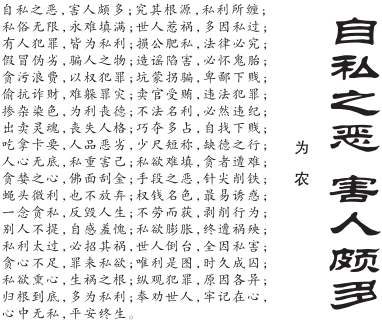 自私之恶 害人颇多
为农
自私之恶，害人颇多；究其根源，私利所缠；
私俗无限，永难填满；世人惹祸，多因私过；
有人犯罪，皆为私利；损公肥私，法律必究；
假冒伪劣，骗人之物；造谣陷害，必怀鬼胎；
贪污浪费，以权犯罪；坑蒙拐骗，卑鄙下贱；
偷抗诈财，难躲罪灾；卖官受贿，违法犯罪；
掺杂染色，为利丧德；不法名利，必然违纪；
出卖灵魂，丧失人格；巧夺多占，自找下贱；
吃拿卡要，人品恶劣；少尺短称，缺德之行；
人心无底，私重害己；私欲难填，贪者遭难；
贪婪之心，佛面刮金；手段之恶，针尖削铁；
蝇头微利，也不放弃；权钱名色，最易诱惑；
一念贪私，反毁人生；不劳而获，剥削行为；
别人不提，自感羞愧；私欲膨胀，终遭祸殃；
私利太过，必招其祸；世人倒台，全因私害；
贪心不足，罪来私欲；唯利是图，时久成囚；
私欲重心，生祸之根；纵观犯罪，原因各异；
归根到底，多为私利；奉劝世人，牢记在心，
心中无私，平安终生。